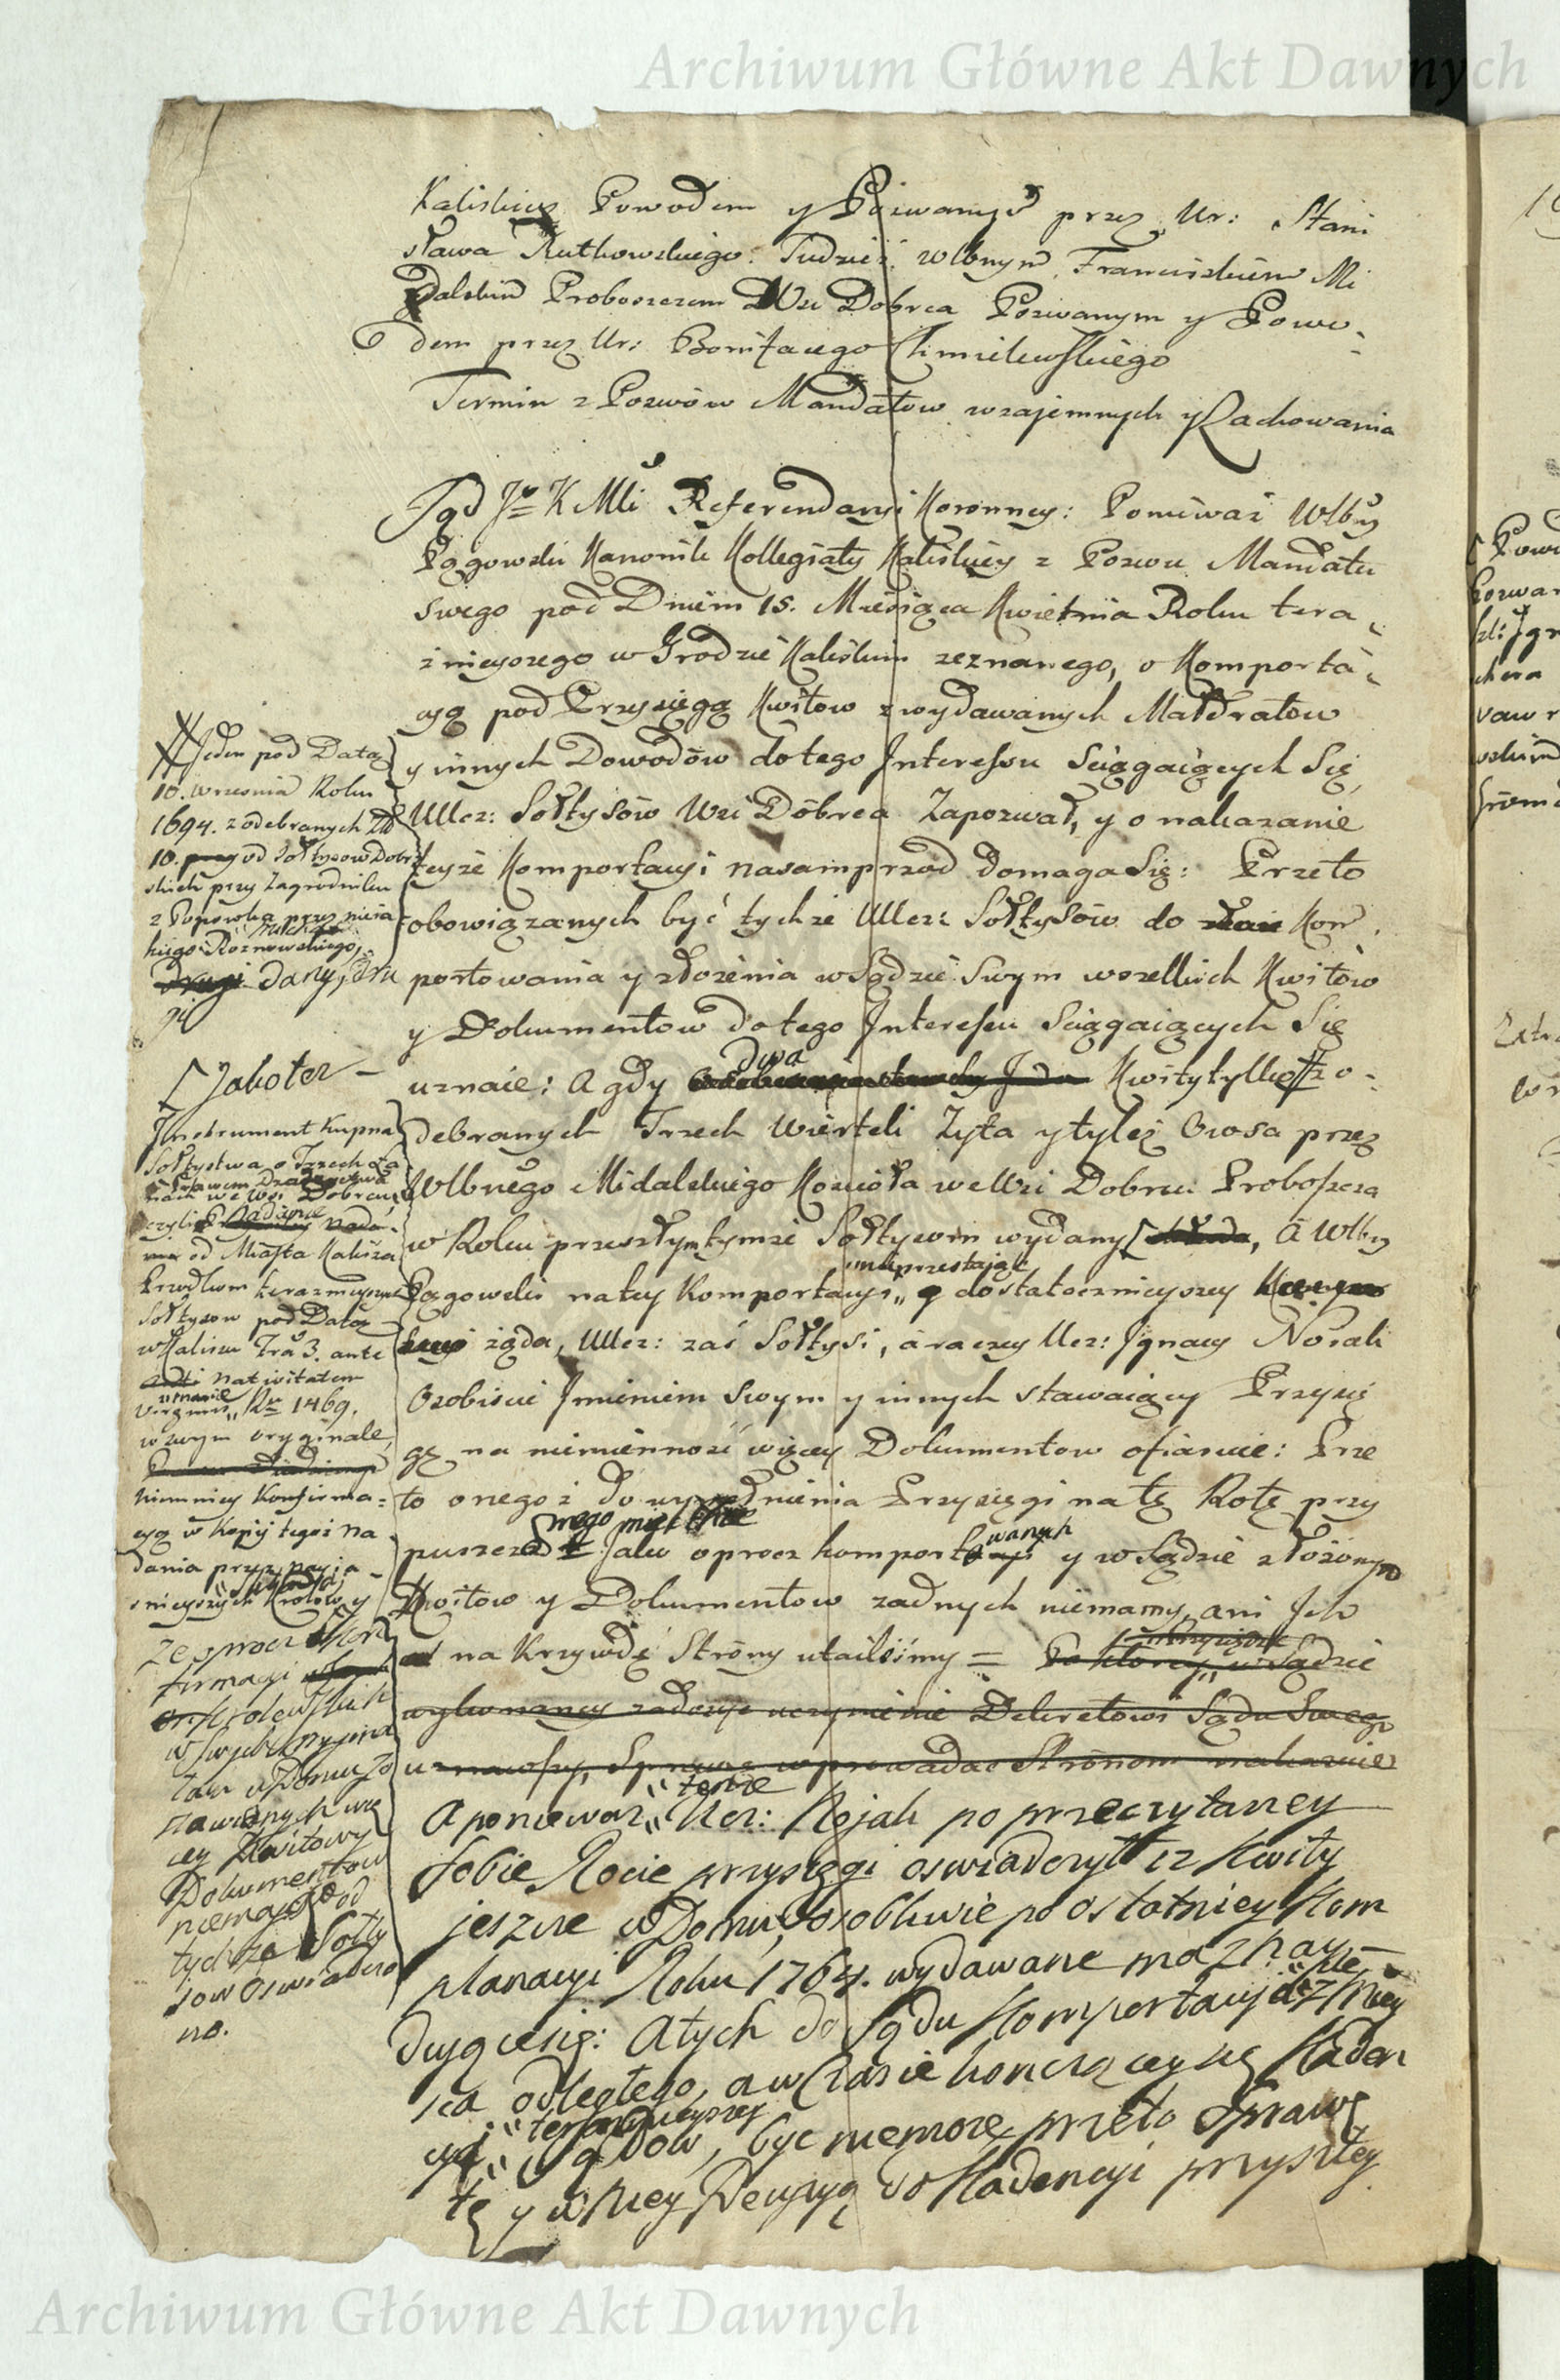 Archiwum Główne Akt Dawnych
Kaliskiey Powodem y Pozwanym przez Ur: Stani
sława Rutkowskiego. Tudzież Wlbnym Franciszkiem Mi
dalskim Proboszczem Wsi Dobrca Pozwanym y Powo-
dem przez Ur: Bonifacego Chmielewskiego
Termin z Pozwów Mandatow wzajemnych y Zachowania
Sąd J K Mci Referendaryi Koronney: Poniewaz Wlbny
Pągowski Kanonik Kollegiaty Kaliskiey z Pozwu Mandatu
swego pod Dniem 15. Miesiąca Kwietnia Roku tera
znieyszego w Grodzie Kaliskim zeznanego, o Komporta-
cyą pod Przysięgą Kwitow z wydawanych Maldratow
y innych Dowodów do tego Interessu sciągaiących się,
Ucz: Sołtysów Wsi Dobrca Zapozwał, y o nakazanie
teyze Komportacyi nasamprzod domaga się: Przeto
obowiązanych być tychże Ucz: Sołtysów do Kom
portowania y złożenia w Sądzie swym wszelkich Kwitow
y Dokumentow do tego Interessu sciągaiących się
uznaie: A gdy dwa Kwity tylko z o-
debranych Trzech Wierteli Żyta y tyleż Owsa przez
Wlbnego Midalskiego Kościoła we Wsi Dobrcu Proboszcza
w Roku przeszłym tymże Sołtysom wydany, A Wlbny
Pągowski na tey Komportacyi nieprzestaiąc dostatecznieyszey
żąda, Ucz: zaś Sołtysi, a raczey Ucz: Ignacy Nosal
Osobiscie Imieniem swym y innych stawaiący Przysię
gę na niemienność więcey Dokumentow ofiaruie: Prze
to onegoż do wypełnienia Przysięgi na tę Rotę przy
puszcza Jako oprocz komportowanych y w Sądzie złożonych
Kwitow y Dokumentow zadnych niemamy, ani Ich
na Krzywdę Strony utailiśmy = Po ktorey w Sądzie
wykonaney zadosyć uczynienie Dekretowi Sądu Swego
uznawszy, Sprawę wprowadzać Stronom nakazuie
A poniewaz tenże Ucz: Nosal po przeczytaney
sobie Rocie przysięgi oswiadczył iz Kwity
jeszcze w Domu, osobliwie po ostatniey Kom
planacyi Roku 1764. wydawane ma znay
duiące się: A tych do Sądu Komportacya z miey
sca odległego, a w Czasie kończącey się Kaden
cyi teraznieyszey Sądow, być niemoże, przeto Sprawę
tę y w niey Decyzyą do Kadencyi przyszłey
Jeden pod Datą
10. Wrzesnia Roku
1694. z odebranych Zł
10. od Sołtysow Dobr
skich przy Zagrodniku
z Popowka przez nieia
kiego Roznowskiego,
dany, dru
gi
Jakotez
Instrument Kupna
Sołtystwa o Trzech Ła
nach we Wsi Dobrcu
od Miasta Kalisza
Przodkom teraznieyszych
Sołtysow pod Datą
w Kaliszu Fra 3. ante
nativitatem
Virginis, Ru 1469.
w swym oryginale
niemniey Konfirma=
cyą w Kopij tegoż na
dania przez nayia
śnieyszych Krolow, y
ze oprocz Kon
firmacyi
Krolewskich
w Domu zo
stawionych wię
cey Kwitow y
Dokumentow
niemaią od
tychze Sołty
sow oswiadczo
no.
Archiwum Główne Akt Dawnych